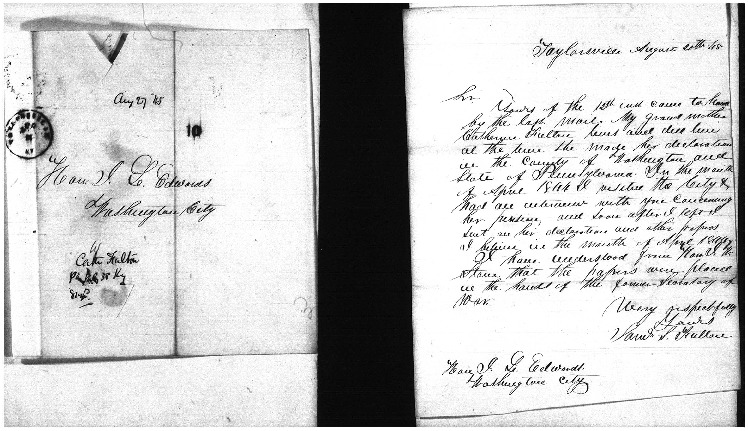 Aug 27 '45
10
Hon. J. L. Edwards
Washington City
Cath Fulton
Taylorsville August 20th 45
Sir
Yours of the 12th inst came to hand
by the last mail. My grand mother
Catherine Fulton lives and did live
at the time she made her declaration
in the County of Washington and
State of Pennsylvania In the month
of April 1844 I visited the City &
had an interview with you concerning
her pension, and soon after I left I
sent on her declaration and other papers
I believe in the month of April
I have understood from Hon
Stone that the papers were placed
in the hands of the former Secretary of
War.
Very respectfully
Yours
Saml S. Fulton
Hon J. L. Edwards
Washington City